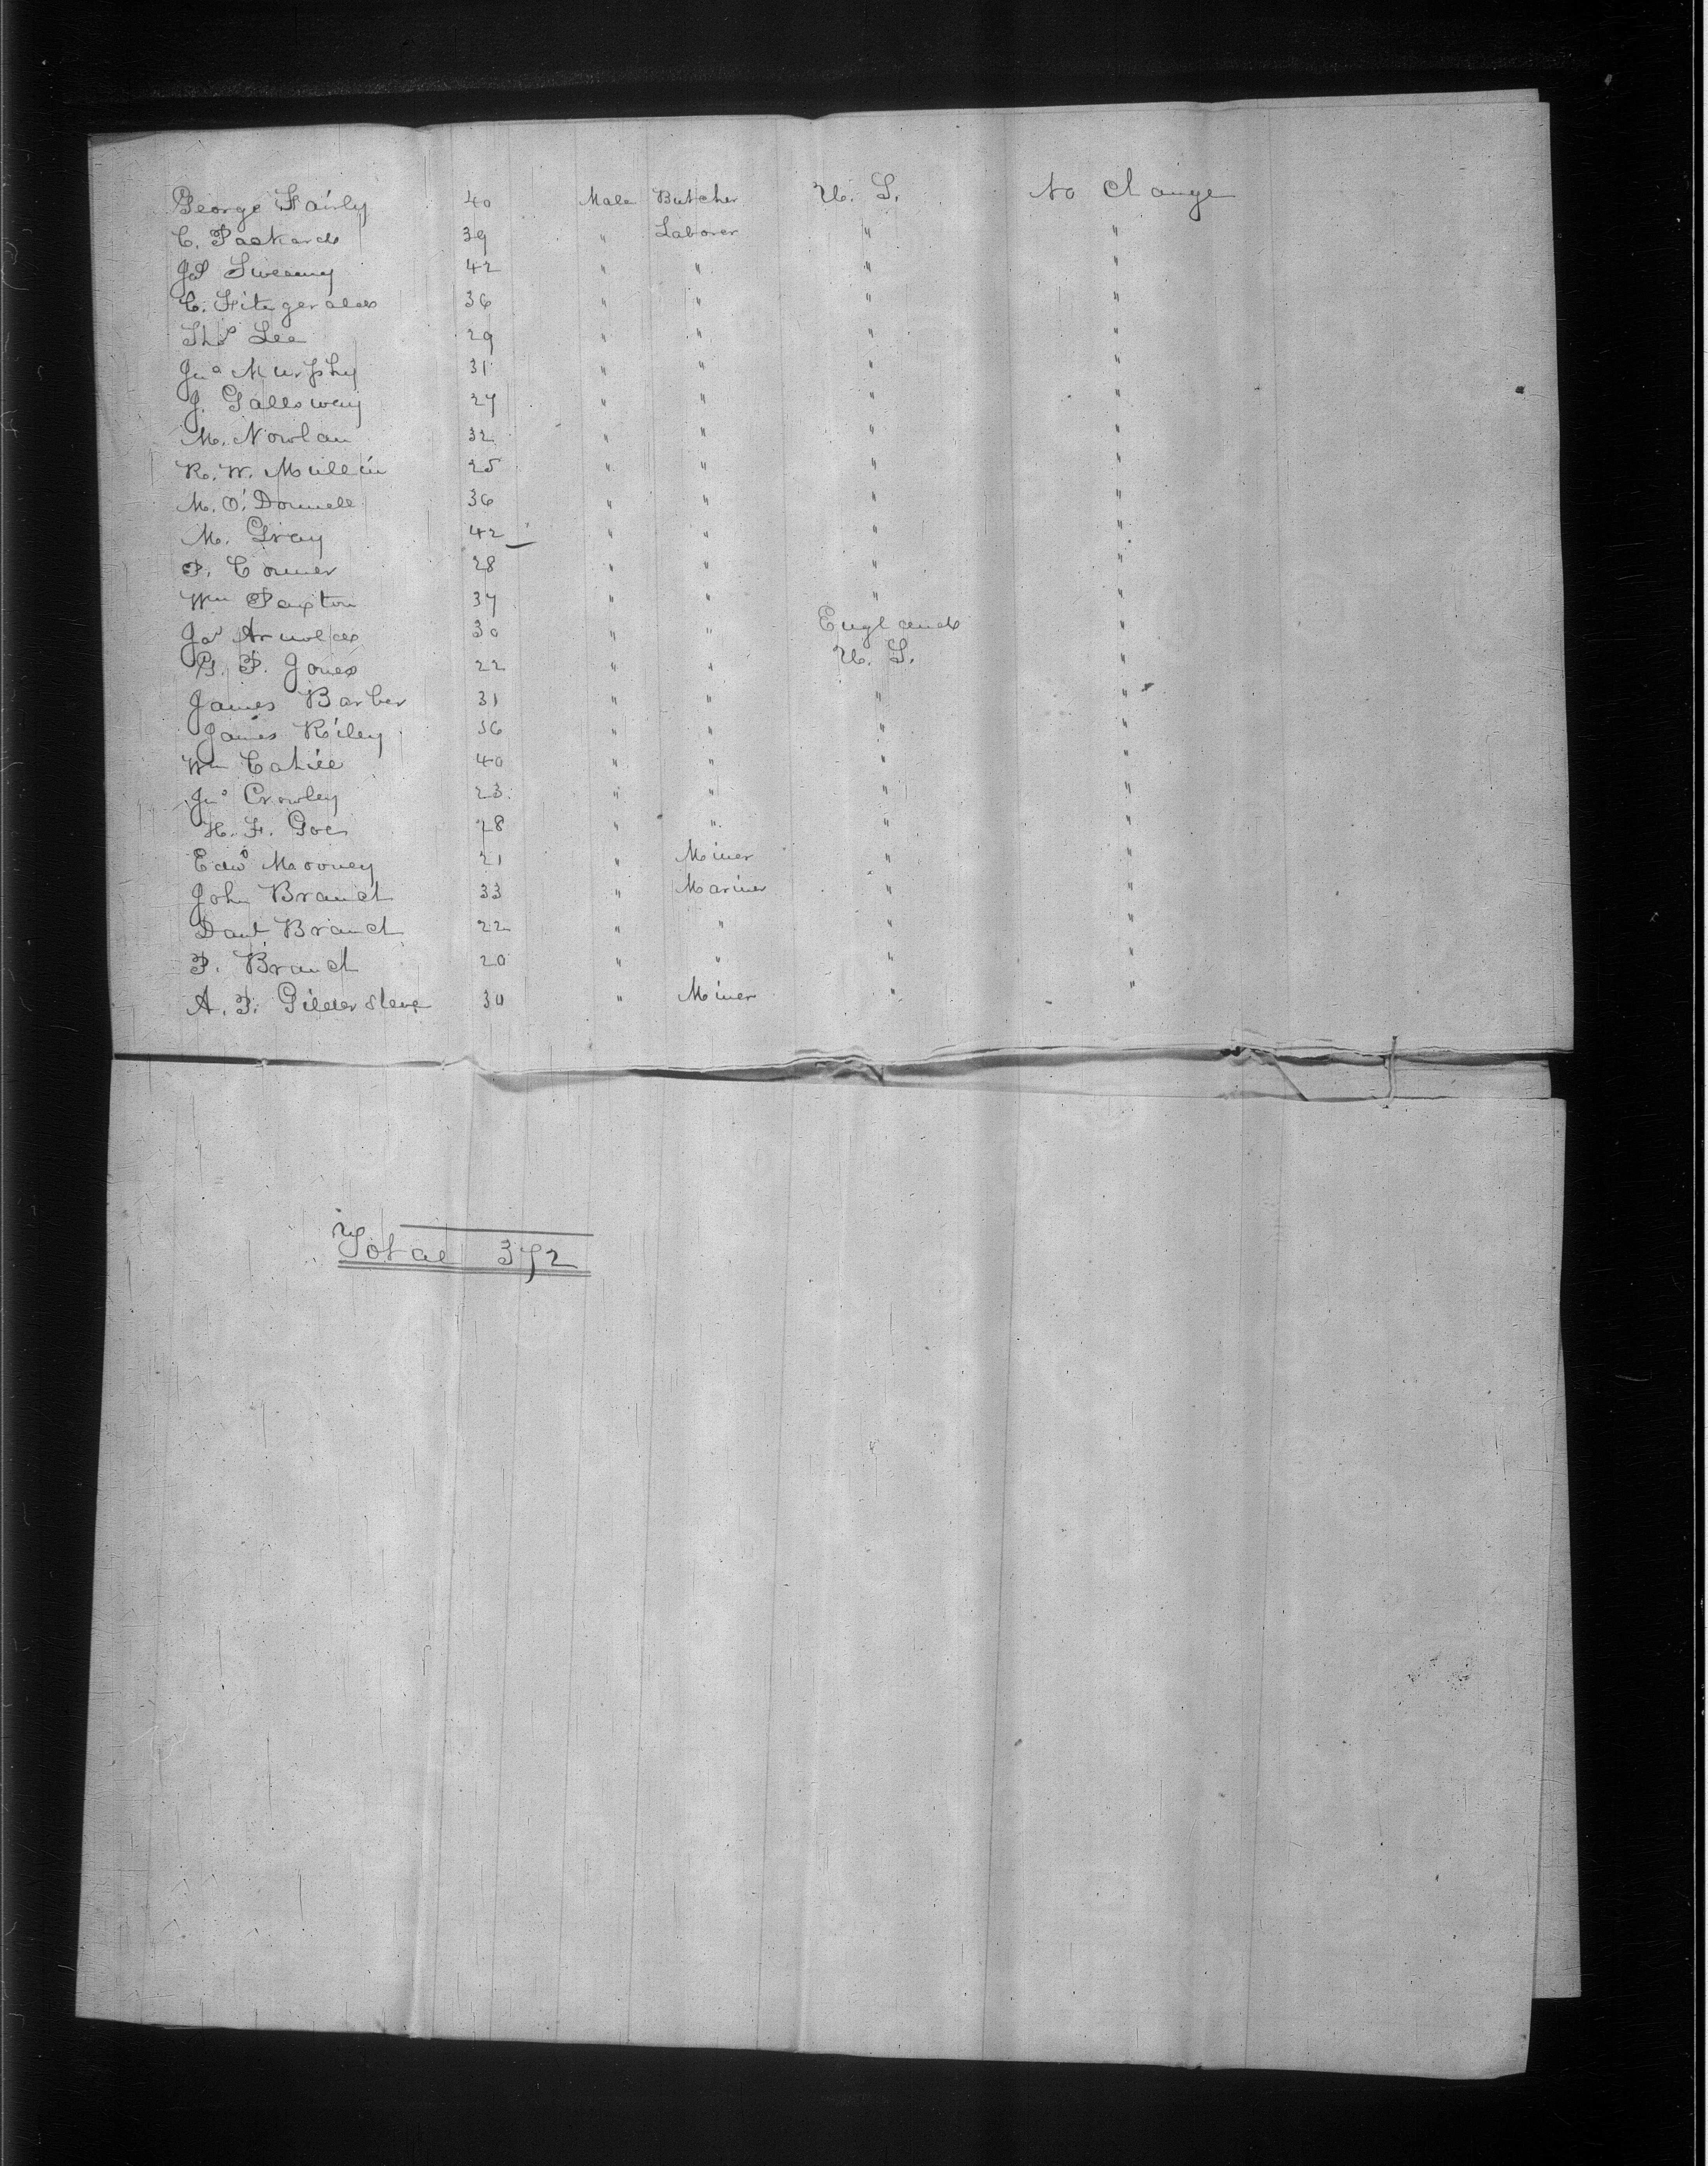 George Fairly 40 Male Butcher U. S. No Change
C. Packard 39 " Laborer " "
Jas Sweeny 42 " " " "
C. Fitzgerald 36 " " " "
Thos Lee 29 " " " "
Jno Murphy 31 " " " "
J. Galloway 27 " " " "
M. Nowlan 32 " " " "
R. W. Mullin 25 " " " "
M. O'Donnell 36 " " " "
M. Gray 42 " " " "
P. Conner 28 " " " "
Wm Paxton 37 " " " "
Jas Arnold 30 " " England "
G. P. Jones 22 " " U. S. "
James Barber 31 " " " "
James Riley 36 " " " "
Wm Cahill 40 " " " "
Jno Crowley 23 " " " "
H. F. 28 " " " "
Edwd Mooney 21 " Miner " "
John Branch 33 " Mariner " "
Danl Branch 22 " " " "
P. Branch 20 " " " "
A. P. Gildersleve 30 " Miner " "
Total 372